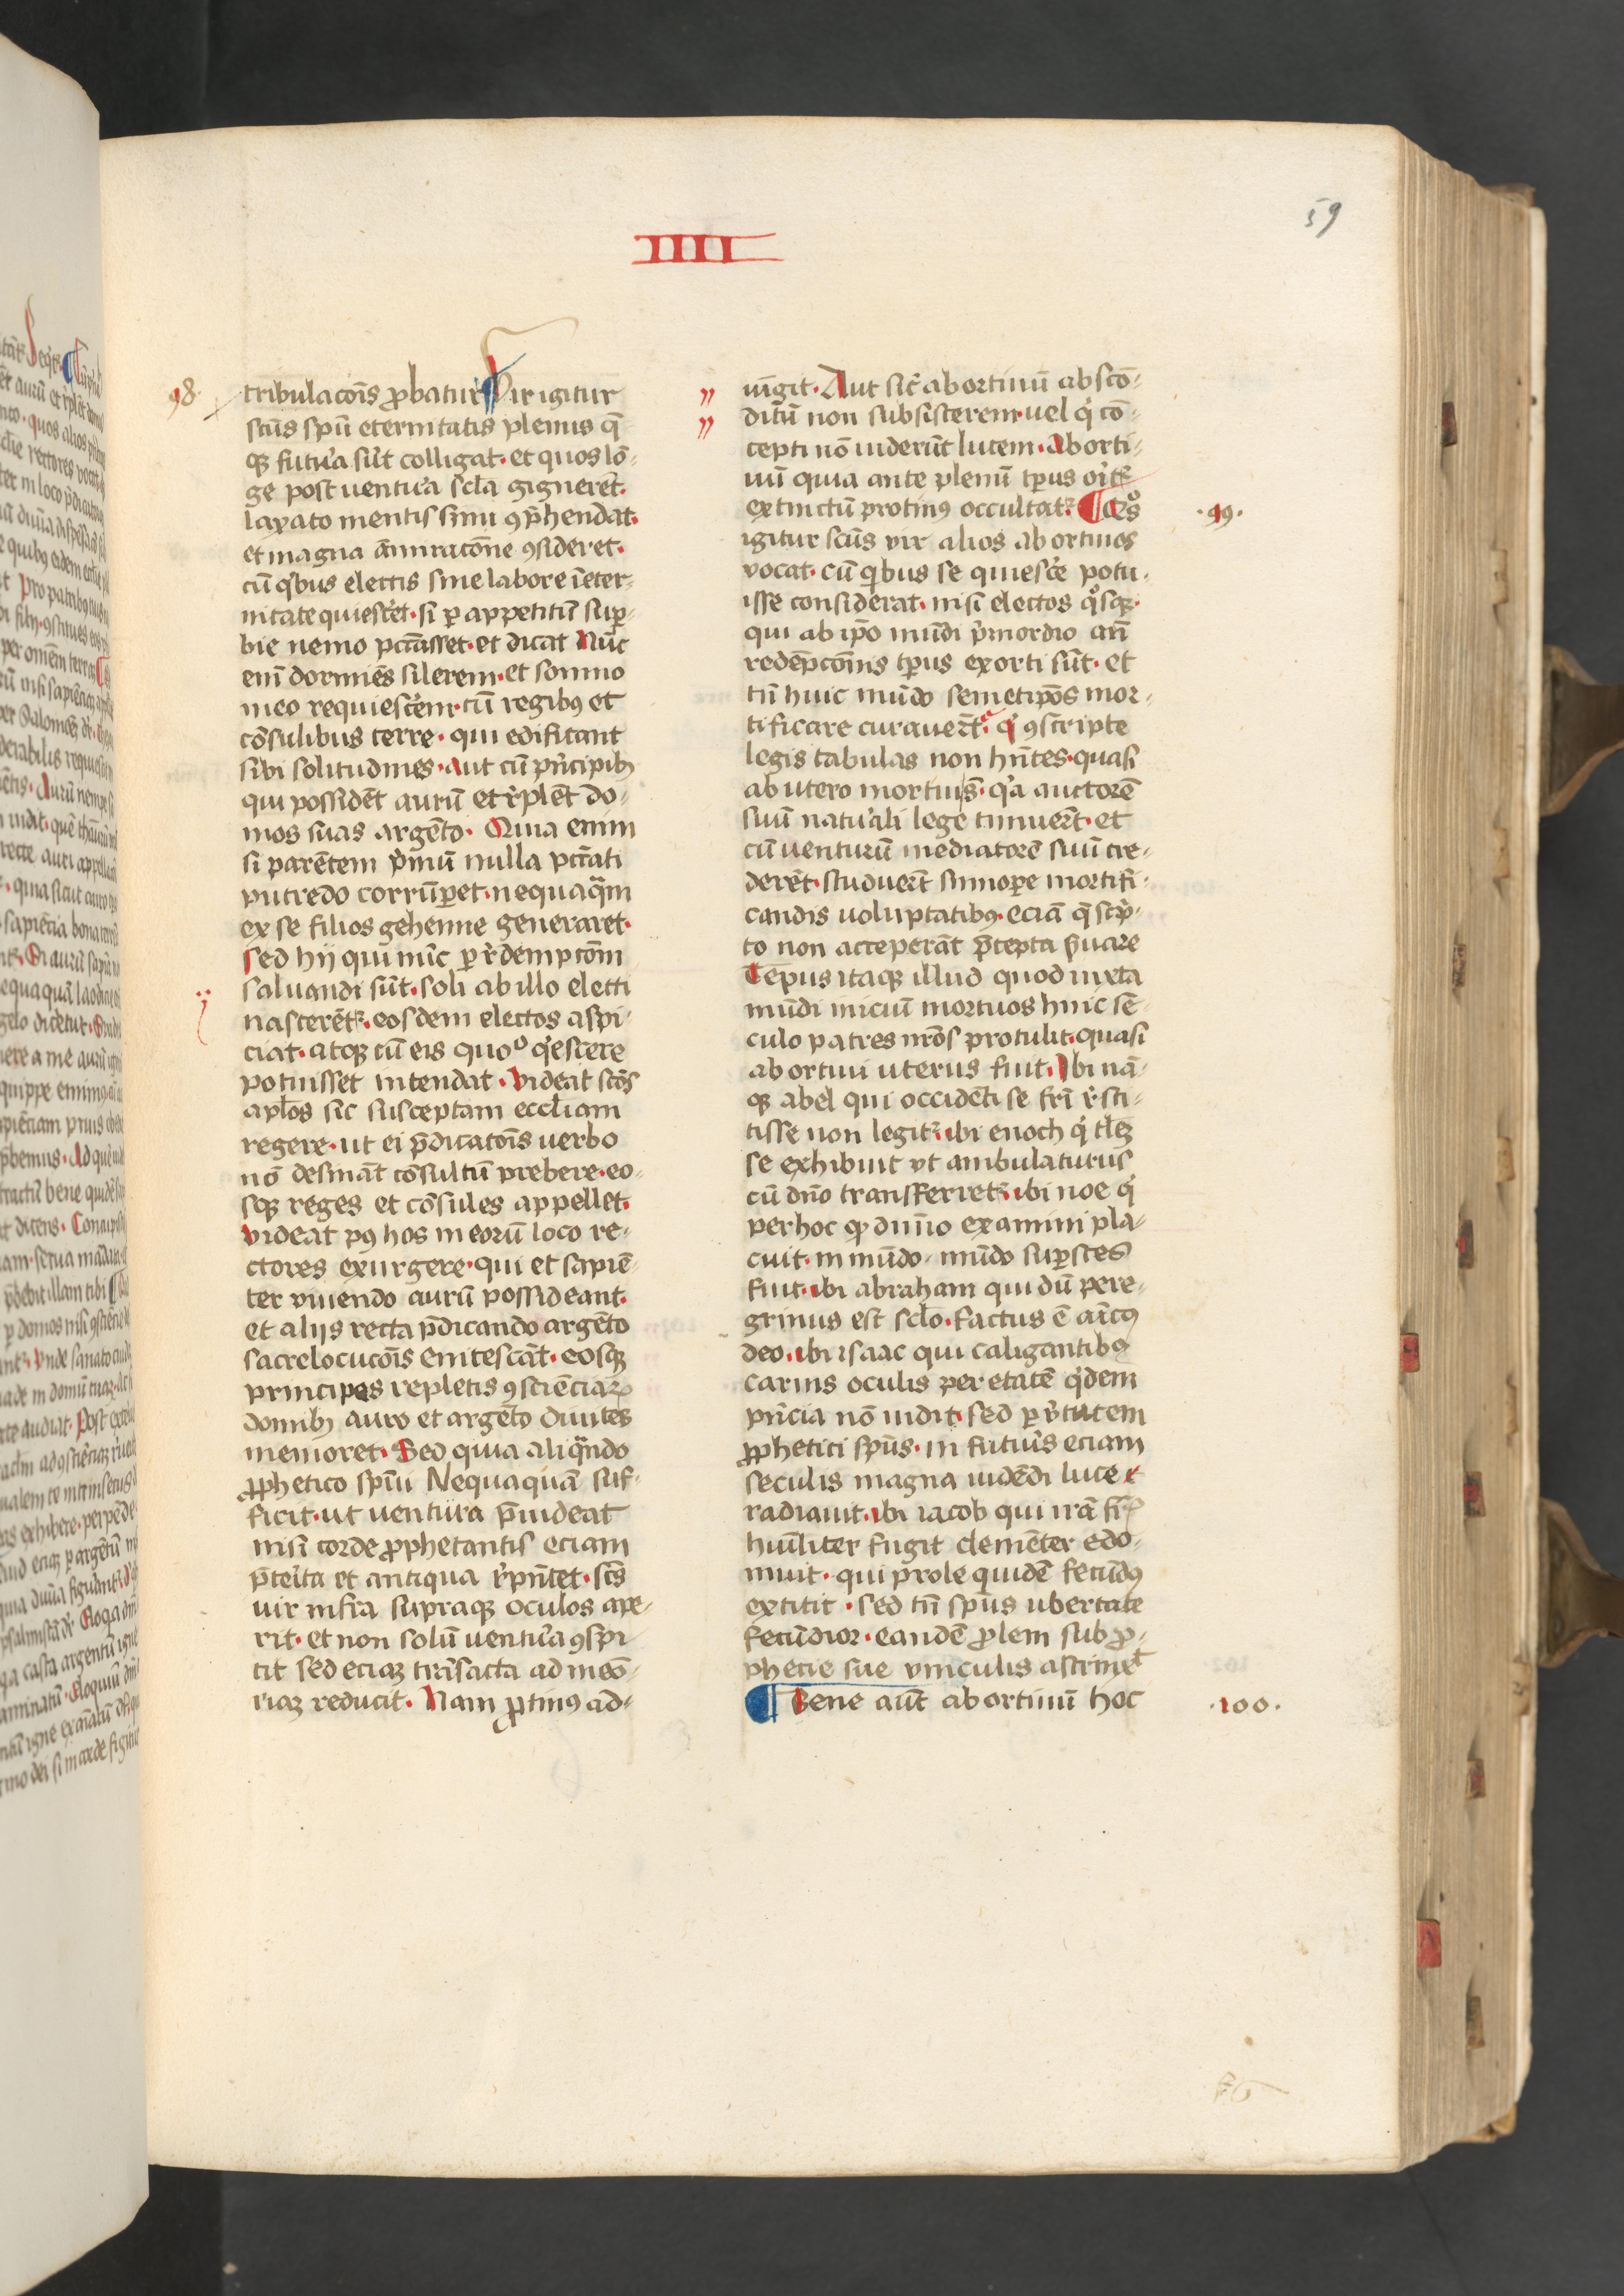 59
IIII
98
tribulacōis ꝓbatur ¶ Vir igitur
sctūs spū eternitatis plenus q̄
qꝫ futu̾a sūt colligat · et quos lō-
ge post ventu̾a sclā gignerēt ·
laxato mentis sinu ꝯp̄hendat ·
et magna āmiracōne ꝯsideret ·
cū qͥbus electis sine labore ī eter-
nitate quiesce̾t · si ꝑ appetitū suꝑ-
bie nemo pctāsset · et dicat Nūc
enī dormiēs silerem · et sompno
meo requiesce̾m · cū regibꝰ et
cōsulibus terre · qui edificant
sibi solitudines · aut cū pͥncipibꝫ
qui possidēt aurū et re̾plēt do-
mos suas argēto · Quia enim
si parētem pͥmū nulla pctāti
putredo corrūꝑet · nequaqᷓm
ex se filios gehenne generaret ·
sed hij qui nūc ꝑ re̾dempcōm
saluandi sūt · soli ab illo electi
nascerētꝛ · eosdem electos aspi-
ciat · atqꝫ cū eis quoº qͥescere
potuisset intendat · Videat sctōs
aplōs sic susceptam eccliam
regere · ut ei p̄dicatōis verbo
nō desināt cōsultū prebere · eo-
sqꝫ reges et cōsules appellet ·
Videat pꝰ hos in eorū loco re-
ctores exurgere · qui et sapiē-
ter viuendo aurū possideant ·
et alijs recta p̄dicando argēto
sacrelocucōis enitescāt · eosqꝫ
principes repletis ꝯscienciaꝝ
domibꝫ auro et argēto diuites
memoret · Sed quia aliqᷓndo
ꝓphetico spūi Nequaquā suf-
ficit · ut ventura p̄uideat
nisi corde ꝓphetantis eciam
p̄teri̾ta et antiqua re̾pn̄tet · sctūs
vir infra supraqꝫ oculos ape-
rit · et non solū ventu̾a ꝯspi
cit sed eciaꝫ trāsacta ad meō-
riaꝫ reducit · Nam ꝓtinꝰ ad-
iūgit · Aut sic̄ abortiuū abscō-
ditū non subsisterem · uel qͥ cō-
cepti nō viderūt lucem · Aborti-
uū quia ante plenū tp̄us oritꝛ
extinctū protinꝰ occultatꝛ · ¶ Qͦs
·99·
igitur sctūs vir alios abortiuos
vocat · cū qͥbus se quiesce̾ potu-
isse considerat · nisi electos qͦsqꝫ ·
qui ab ip̄o mūdi pͥmordio an̄
redēpcōnis tp̄us exorti sūt · et
tn̄ huic mūdo semetip̄os mor-
tificare curauer̄t · qͥ ꝯscripte
legis tabulas non hn̄tes · quasi
ab utero mortui s̄t · qͥa auctorē
suū naturali lege timuer̄t · et
cū venturū mediatorē suū cre-
derēt · studuer̄t sūmoꝑe mortifi-
candis voluptatibꝰ · eciā q̄ scͥp-
to non acceperāt p̄cepta s̄uare
Tēpus itaqꝫ illud quod iuxta
mūdi iniciū mortuos huic sē-
culo patres nr̄os protulit · quasi
abortiui uterus fuit · Ibi nā-
qꝫ abel qui occidēti se fr̄i re̾sti-
tisse non legitꝛ · ibi enoch qͥ tlēꝫ
se exhibuit vt ambulaturus
cū dn̄o transferretꝛ · ibi noe qͥ
per hoc ꝙ diuīo examini pla-
cuit · in mūdo · mūdo suꝑstes
fuit · ibi abraham qui dū pere-
grinus est sclo · factus ē amīcꝰ
deo · ibi isaac qui caligantibꝰ
carnis oculis per etatē qͥdem
pn̄cia nō vidit · sed ꝑ v̾tutem
ꝓphetici spūs · in futuris eciam
seculis magna vidēdi luce
radiauit · ibi iacob qui irā fr̄is
humīliter fugit clemēter edo-
muit · qui prole quidē fecūdꝰ
extitit · sed tn̄ spūs ubertate
fecūdior · eandē ꝓlem sub ꝓ-
phecie sue vinculis astrinxͭ
¶ Bene aūt abortiuū hoc
·100·